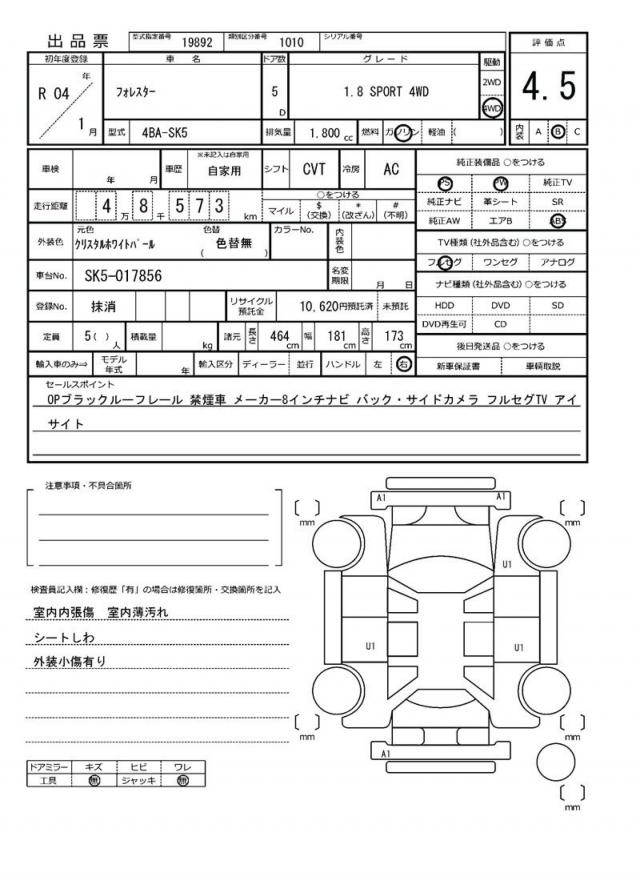 出品票
型式指定番号 19892 類別区分番号 1010 シリアル番号
評価点
4.5
初年度登録 車名 ドア数 グレード 駆動
R 04 年 1 月
フォレスター
5 D
1.8 SPORT 4WD
2WD
4WD
型式 4BA-SK5 排気量 1.800 cc 燃料 ガソリン 軽油 ( )
内装 A B C
車検 年 月 車歴 ※未記入は自家用 自家用 シフト CVT 冷房 AC
純正装備品 ○をつける
PS PW 純正TV
純正ナビ 革シート SR
純正AW エアB ABS
走行距離 4 万 8 千 5 7 3 km
○をつける
マイル $(交換) *(改ざん) #(不明)
TV種類(社外品含む)○をつける
フルセグ ワンセグ アナログ
外装色 元色 クリスタルホワイトパール 色替 ( 色替無 ) カラーNo. 内装色
ナビ種類(社外品含む)○をつける
HDD DVD SD
DVD再生可 CD
車台No. SK5-017856 名変期限 月 日
登録No. 抹消 リサイクル預託金 10,620円預託済 未預託
定員 5( )人 積載量 kg 諸元 長さ 464cm 幅 181cm 高さ 173cm
後日発送品 ○をつける
新車保証書 車輌取説
輸入車のみ⇒ モデル年式 年 輸入区分 ディーラー 並行 ハンドル 左 右
セールスポイント
OPブラックルーフレール 禁煙車 メーカー8インチナビ バック・サイドカメラ フルセグTV アイ
サイト
注意事項・不具合箇所
検査員記入欄:修復歴「有」の場合は修復箇所・交換箇所を記入
室内内張傷 室内薄汚れ
シートしわ
外装小傷有り
ドアミラー キズ ヒビ ワレ
工具 無 ジャッキ 無
A1 A1
mm mm
U1
U1 U1
mm mm
A1
mm